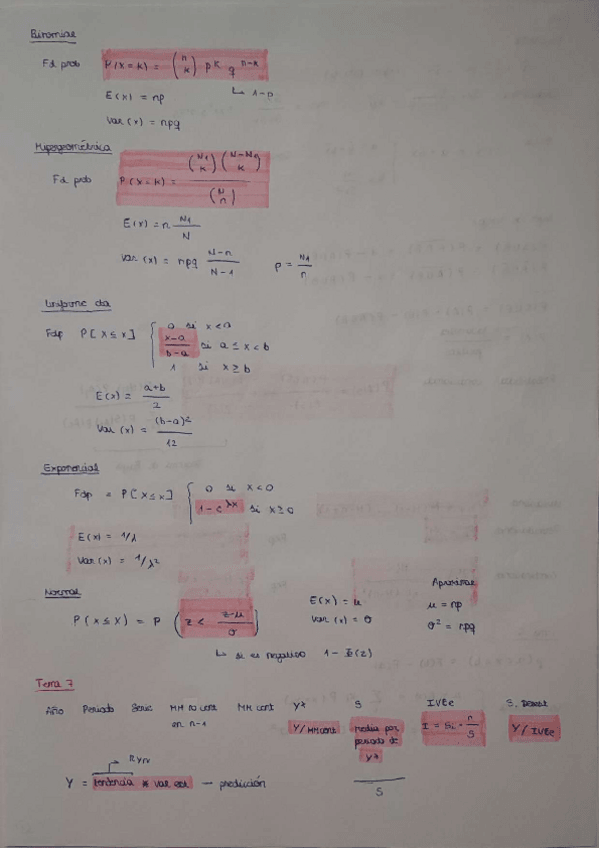 Binomial
Fd prob P(X=k) = (n k) p^k q^n-k
↳ 1-p
E(x) = np
Var(x) = npq
Hipergeométrica
Fd prob P(X=k) = (N1 k)(N-N1 k) / (N n)
E(x) = n N1/N
Var(x) = npq N-n/N-1 p = N1/n
Uniforme
Fdp P[X≤x] { 0 si x<a
x-a/b-a si a≤x<b
1 si x≥b
E(x) = a+b/2
Var(x) = (b-a)²/12
Exponencial
Fdp = P[X≤x] { 0 si x<0
1-e^λx si x≥0
E(x) = 1/λ
Var(x) = 1/λ²
Normal Aproximar
P(x≤X) = P(z < z-μ/σ) E(x) = μ μ = np
Var(x) = σ σ² = npq
↳ si es negativo 1-Φ(z)
Tema 7
Año Periodo Serie MM no cont en n-1 MM cont Y* S IVEe S. Desest
Y/MMcont medias por periodo de Y* I = Si · n/S Y/IVEe
S
Y = tendencia * var est — predicción